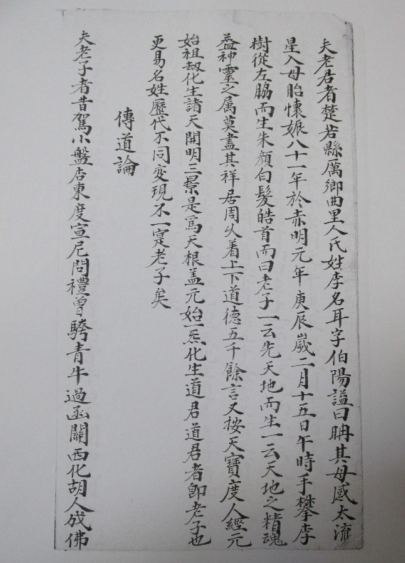 夫老居者楚若縣厲鄉曲里人氏姓李名耳字伯陽謚曰聃其母感太流
星入母胎懷娠八十一年於赤明元年庚辰歲二月十五日午時手攀李
樹從左脇而生朱顏白髮皓首而曰老子一云先天地而生一云天地之精魂
益神靈之属莫盡其祥居周久着上下道德五千餘言又按天寶度人經元
始祖刼化生諸天開明三景是爲天根盖元始一炁化生道君道君者卽老子也
更易名姓歷代不同变現不一寔老子矣
傳道論
夫老子者昔駕小盤店東度宣尼問禮曾騎青牛過函關西化胡人成佛